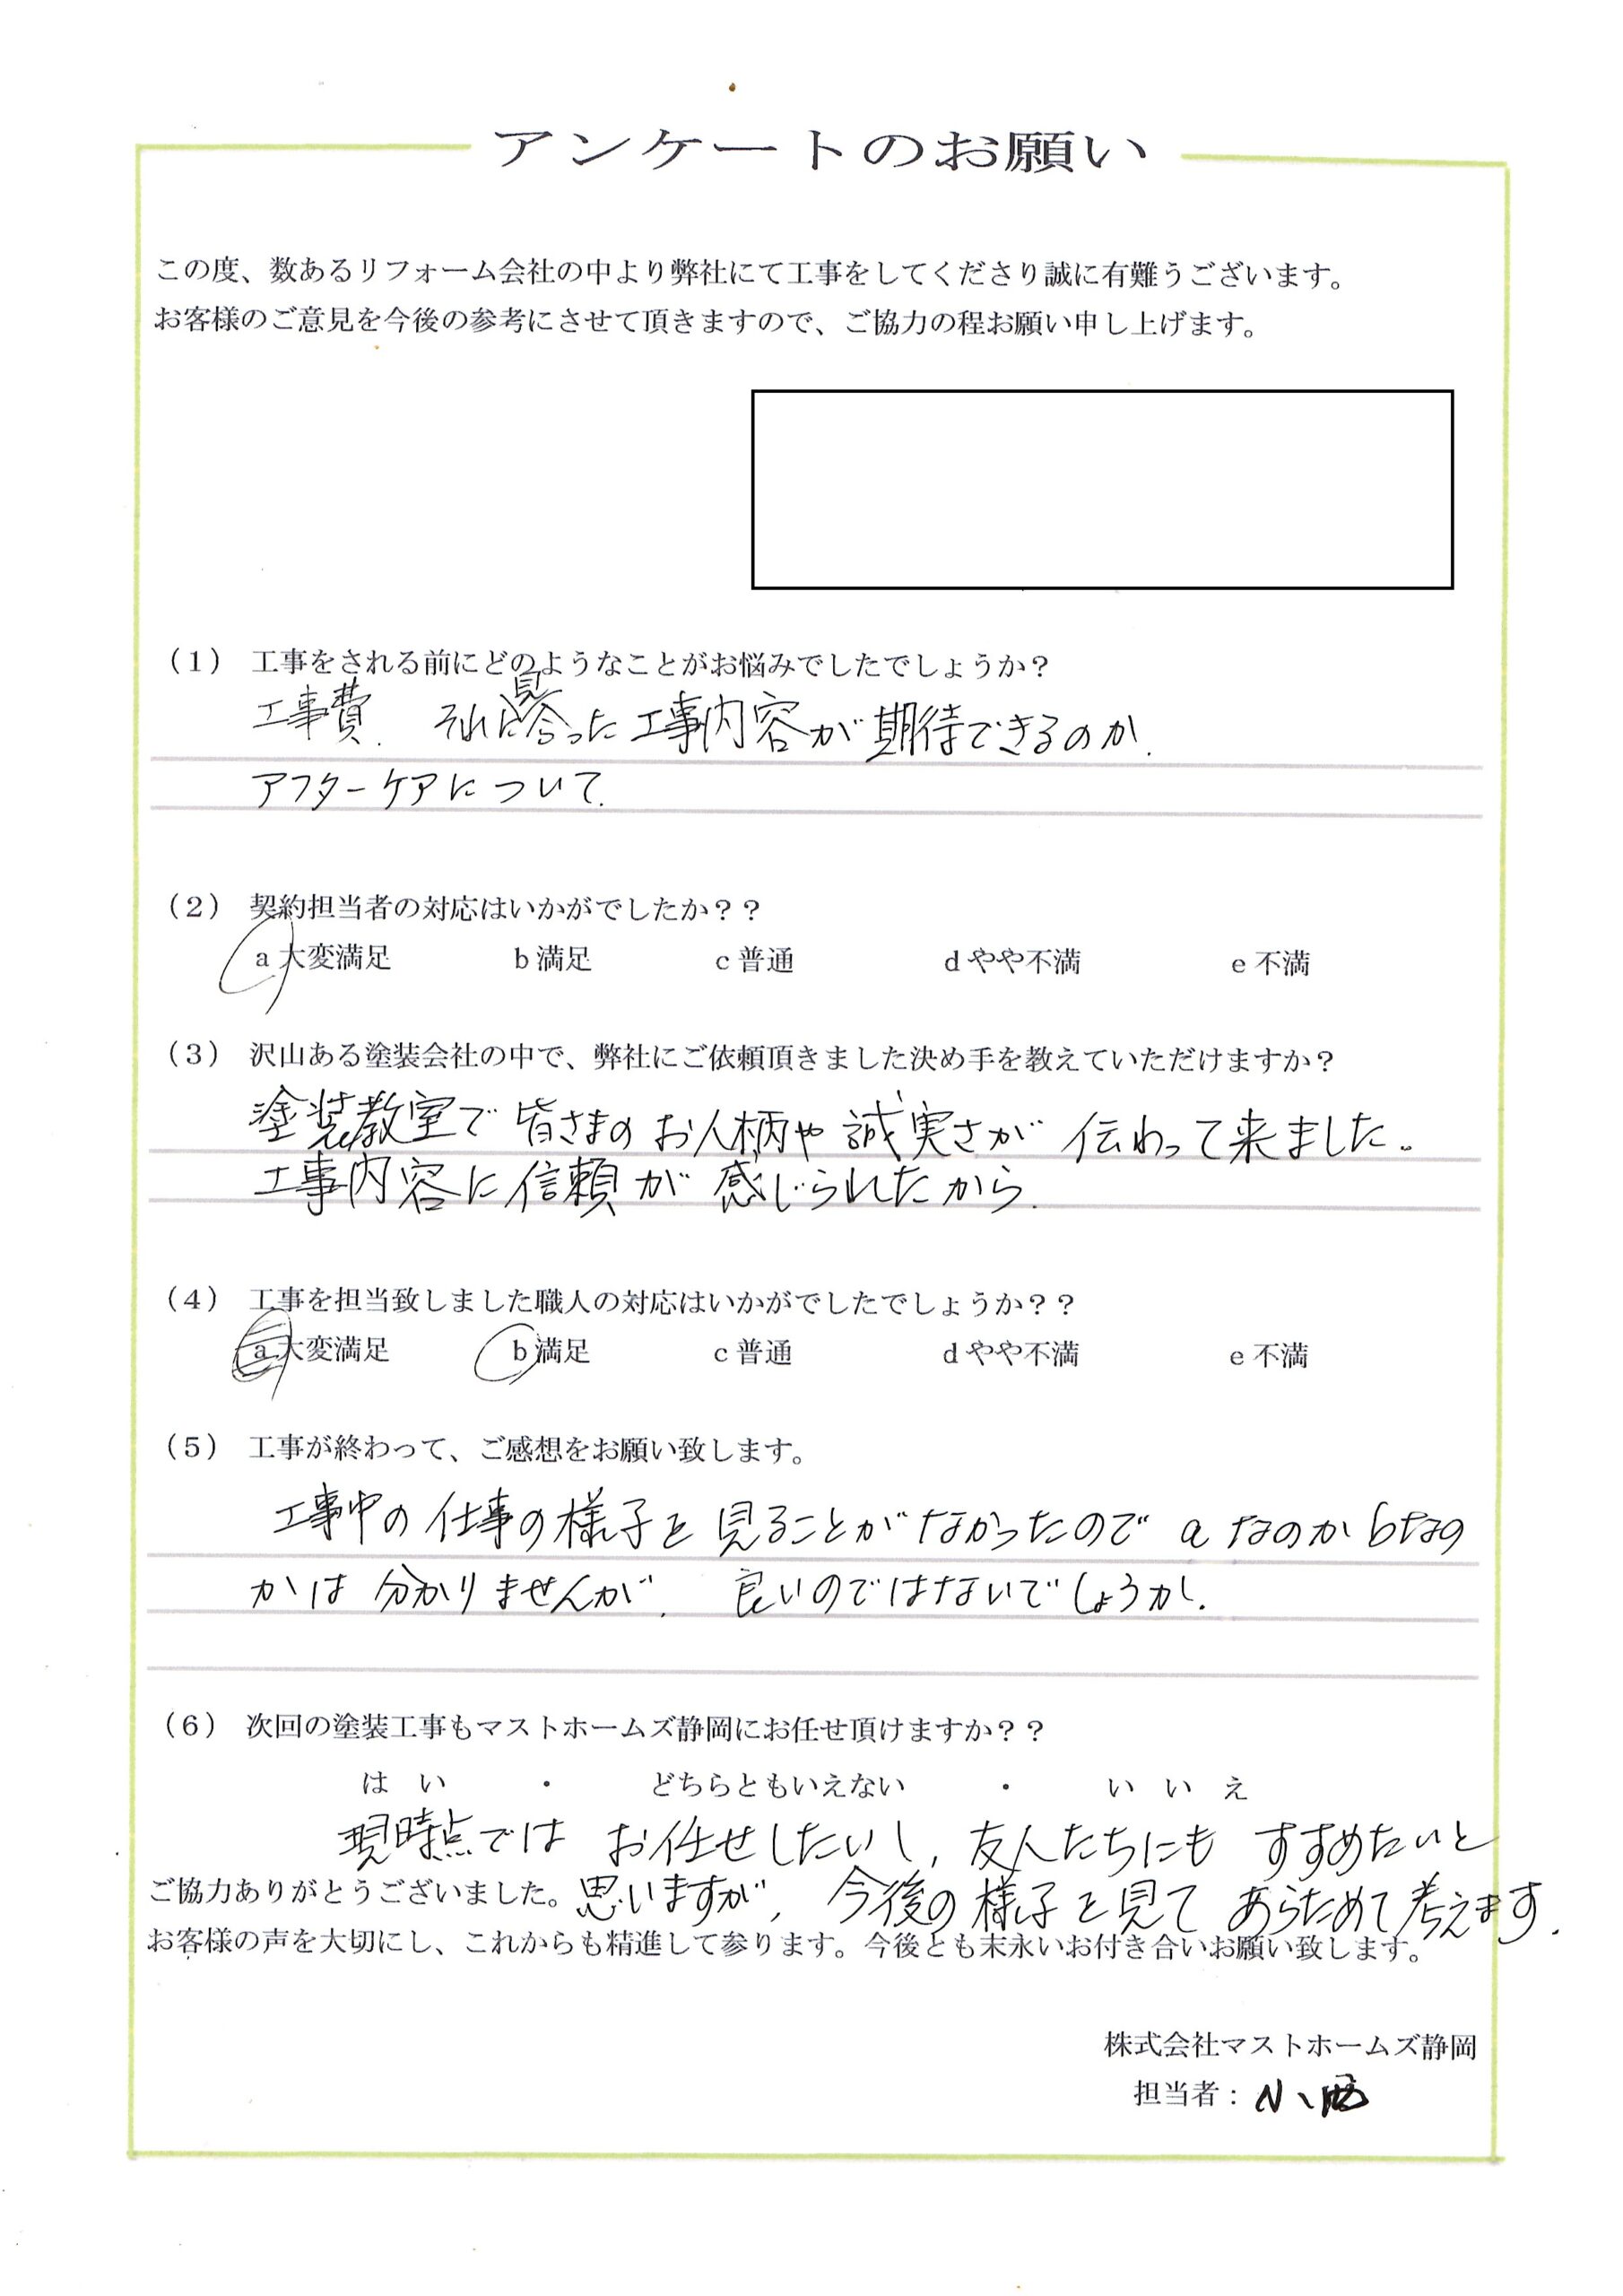 アンケートのお願い
この度、数あるリフォーム会社の中より弊社にて工事をしてくださり誠に有難うございます。
お客様のご意見を今後の参考にさせて頂きますので、ご協力の程お願い申し上げます。
（1） 工事をされる前にどのようなことがお悩みでしたでしょうか？
工事費、それに見合った工事内容が期待できるのか、
アフターケアについて、
（2） 契約担当者の対応はいかがでしたか？？
a 大変満足 b 満足 c 普通 d やや不満 e 不満
（3） 沢山ある塗装会社の中で、弊社にご依頼頂きました決め手を教えていただけますか？
塗装教室で皆さまのお人柄や誠実さが伝わって来ました。
工事内容に信頼が感じられたから、
（4） 工事を担当致しました職人の対応はいかがでしたでしょうか？？
a 大変満足 b 満足 c 普通 d やや不満 e 不満
（5） 工事が終わって、ご感想をお願い致します。
工事中の仕事の様子を見ることがなかったのでaなのかbなの
かは分かりませんが、良いのではないでしょうか。
（6） 次回の塗装工事もマストホームズ静岡にお任せ頂けますか？？
はい ・ どちらともいえない ・ いいえ
現時点ではお任せしたいし、友人たちにもすすめたいと
ご協力ありがとうございました。思いますが、今後の様子を見てあらためて考えます.
お客様の声を大切にし、これからも精進して参ります。今後とも末永いお付き合いお願い致します。
株式会社マストホームズ静岡
担当者：小西